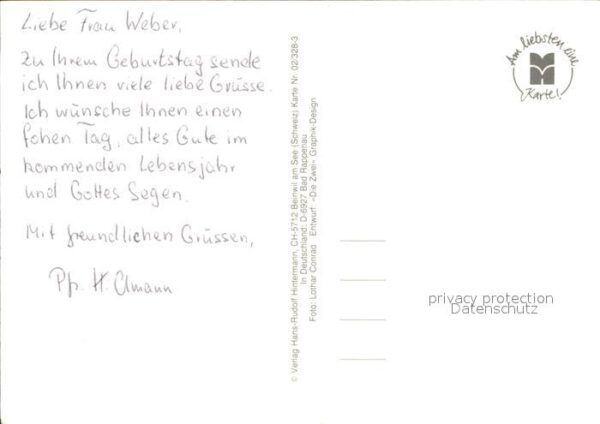 Liebe Frau Weber,
zu Ihrem Geburtstag sende
ich Ihnen viele liebe Grüsse.
Ich wünsche Ihnen einen
fohen Tag, alles Gute im
kommenden Lebensjahr
und Gottes Segen.
Mit freundlichen Grüssen,
H.
© Verlag Hans-Rudolf Hintermann, CH-5712 Beinwil am See (Schweiz) Karte Nr. 02-328-3
In Deutschland: D-6927 Bad Rappenau
Foto: Lothar Conrad Entwurf: «Die Zwei» Graphik-Design
Am liebsten eine
Karte!
privacy protection
Datenschutz